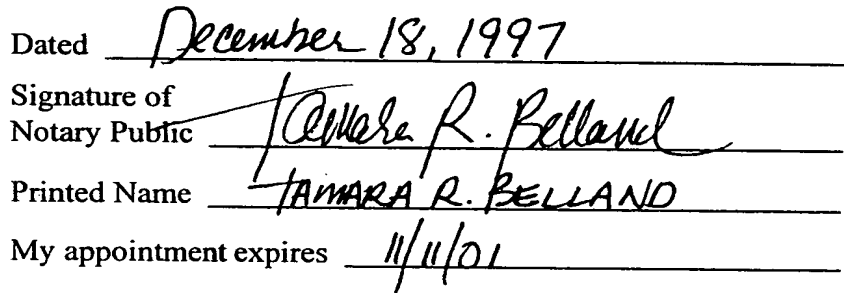 Dated December 18, 1997
Signature of
Notary Public Tamara R. Belland
Printed Name TAMARA R. BELLAND
My appointment expires 11/11/01